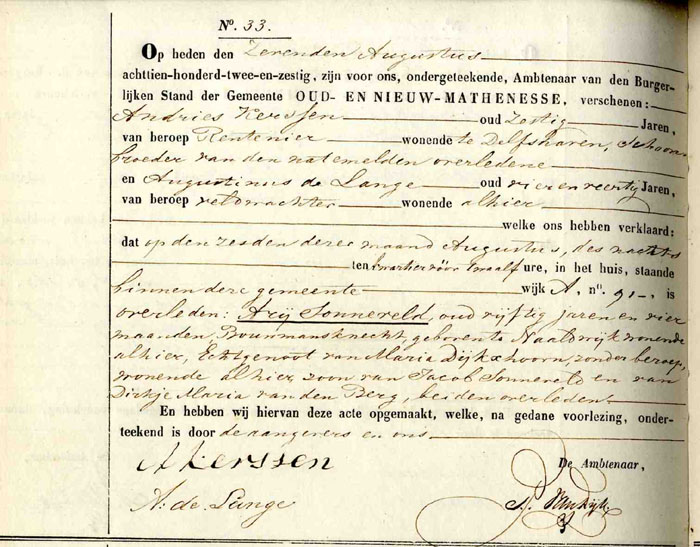 No. 33.
Op heden den Zevenden Augustus
achttien-honderd-twee-en-zestig, zijn voor ons, ondergeteekende, Ambtenaar van den Burger-
lijken Stand der Gemeente OUD- EN NIEUW-MATHENESSE, verschenen:
Andries Kerssen oud Zestig Jaren,
van beroep Rentenier wonende te Delfshaven, Schoon
broeder van den natemelden overledene
en Augustinus de Lange oud vier en veertig Jaren,
van beroep veldwachter wonende alhier
welke ons hebben verklaard:
dat op den zesden dezer maand Augustus, des nachts
ten kwartier vóór twaalf ure, in het huis, staande
binnen deze gemeente wijk A, no. 91 is
overleden: Arij Sonneveld, oud vijftig jaren en vier
maanden Bouwmansknecht, geboren te Naaldwijk wonende
alhier, Echtgenoot van Maria Dijkxhoorn, zonder beroep,
wonende alhier, zoon van Jacob Sonneveld en van
Dirkje Maria van den Berg, beiden overleden.
En hebben wij hiervan deze acte opgemaakt, welke, na gedane voorlezing, onder-
teekend is door de aangevers en ons
A Kerssen
De Ambtenaar,
A. de Lange